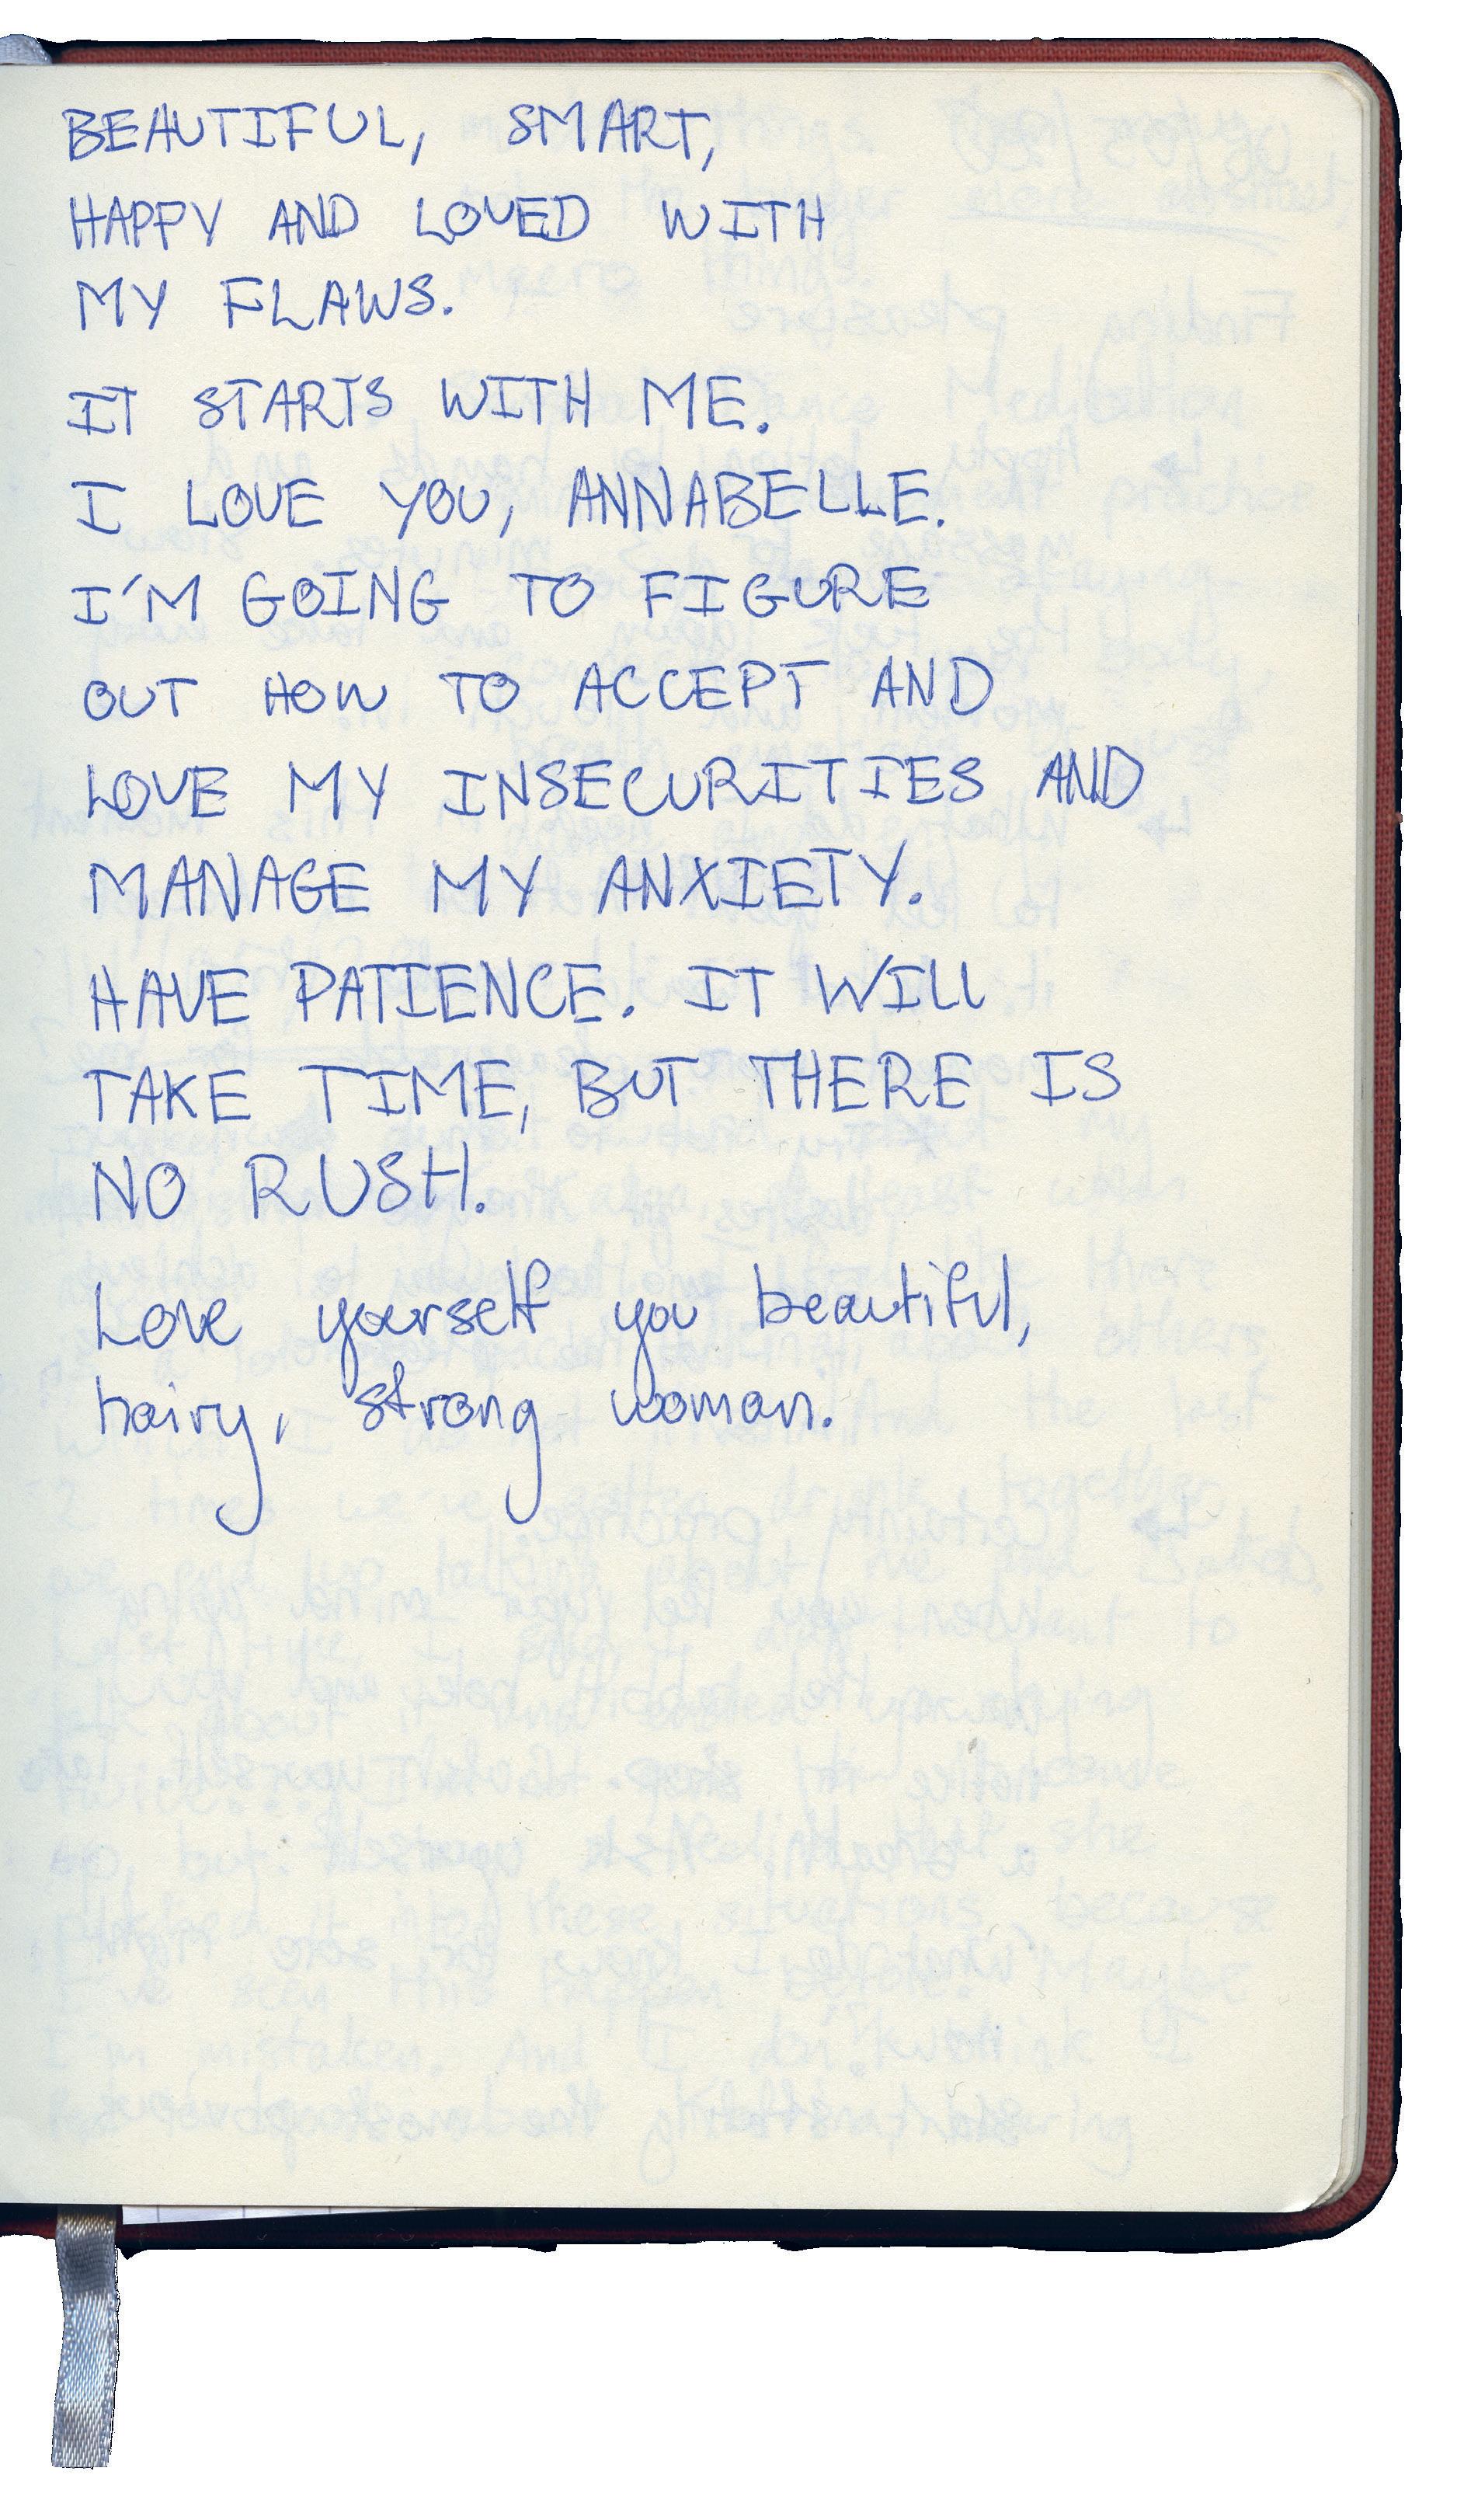 BEAUTIFUL, SMART,
HAPPY AND LOVED WITH
MY FLAWS.
IT STARTS WITH ME.
I LOVE YOU, ANNABELLE.
I'M GOING TO FIGURE
OUT HOW TO ACCEPT AND
LOVE MY INSECURITIES AND
MANAGE MY ANXIETY.
HAVE PATIENCE. IT WILL
TAKE TIME, BUT THERE IS
NO RUSH.
Love yourself you beautiful,
hairy, strong woman.